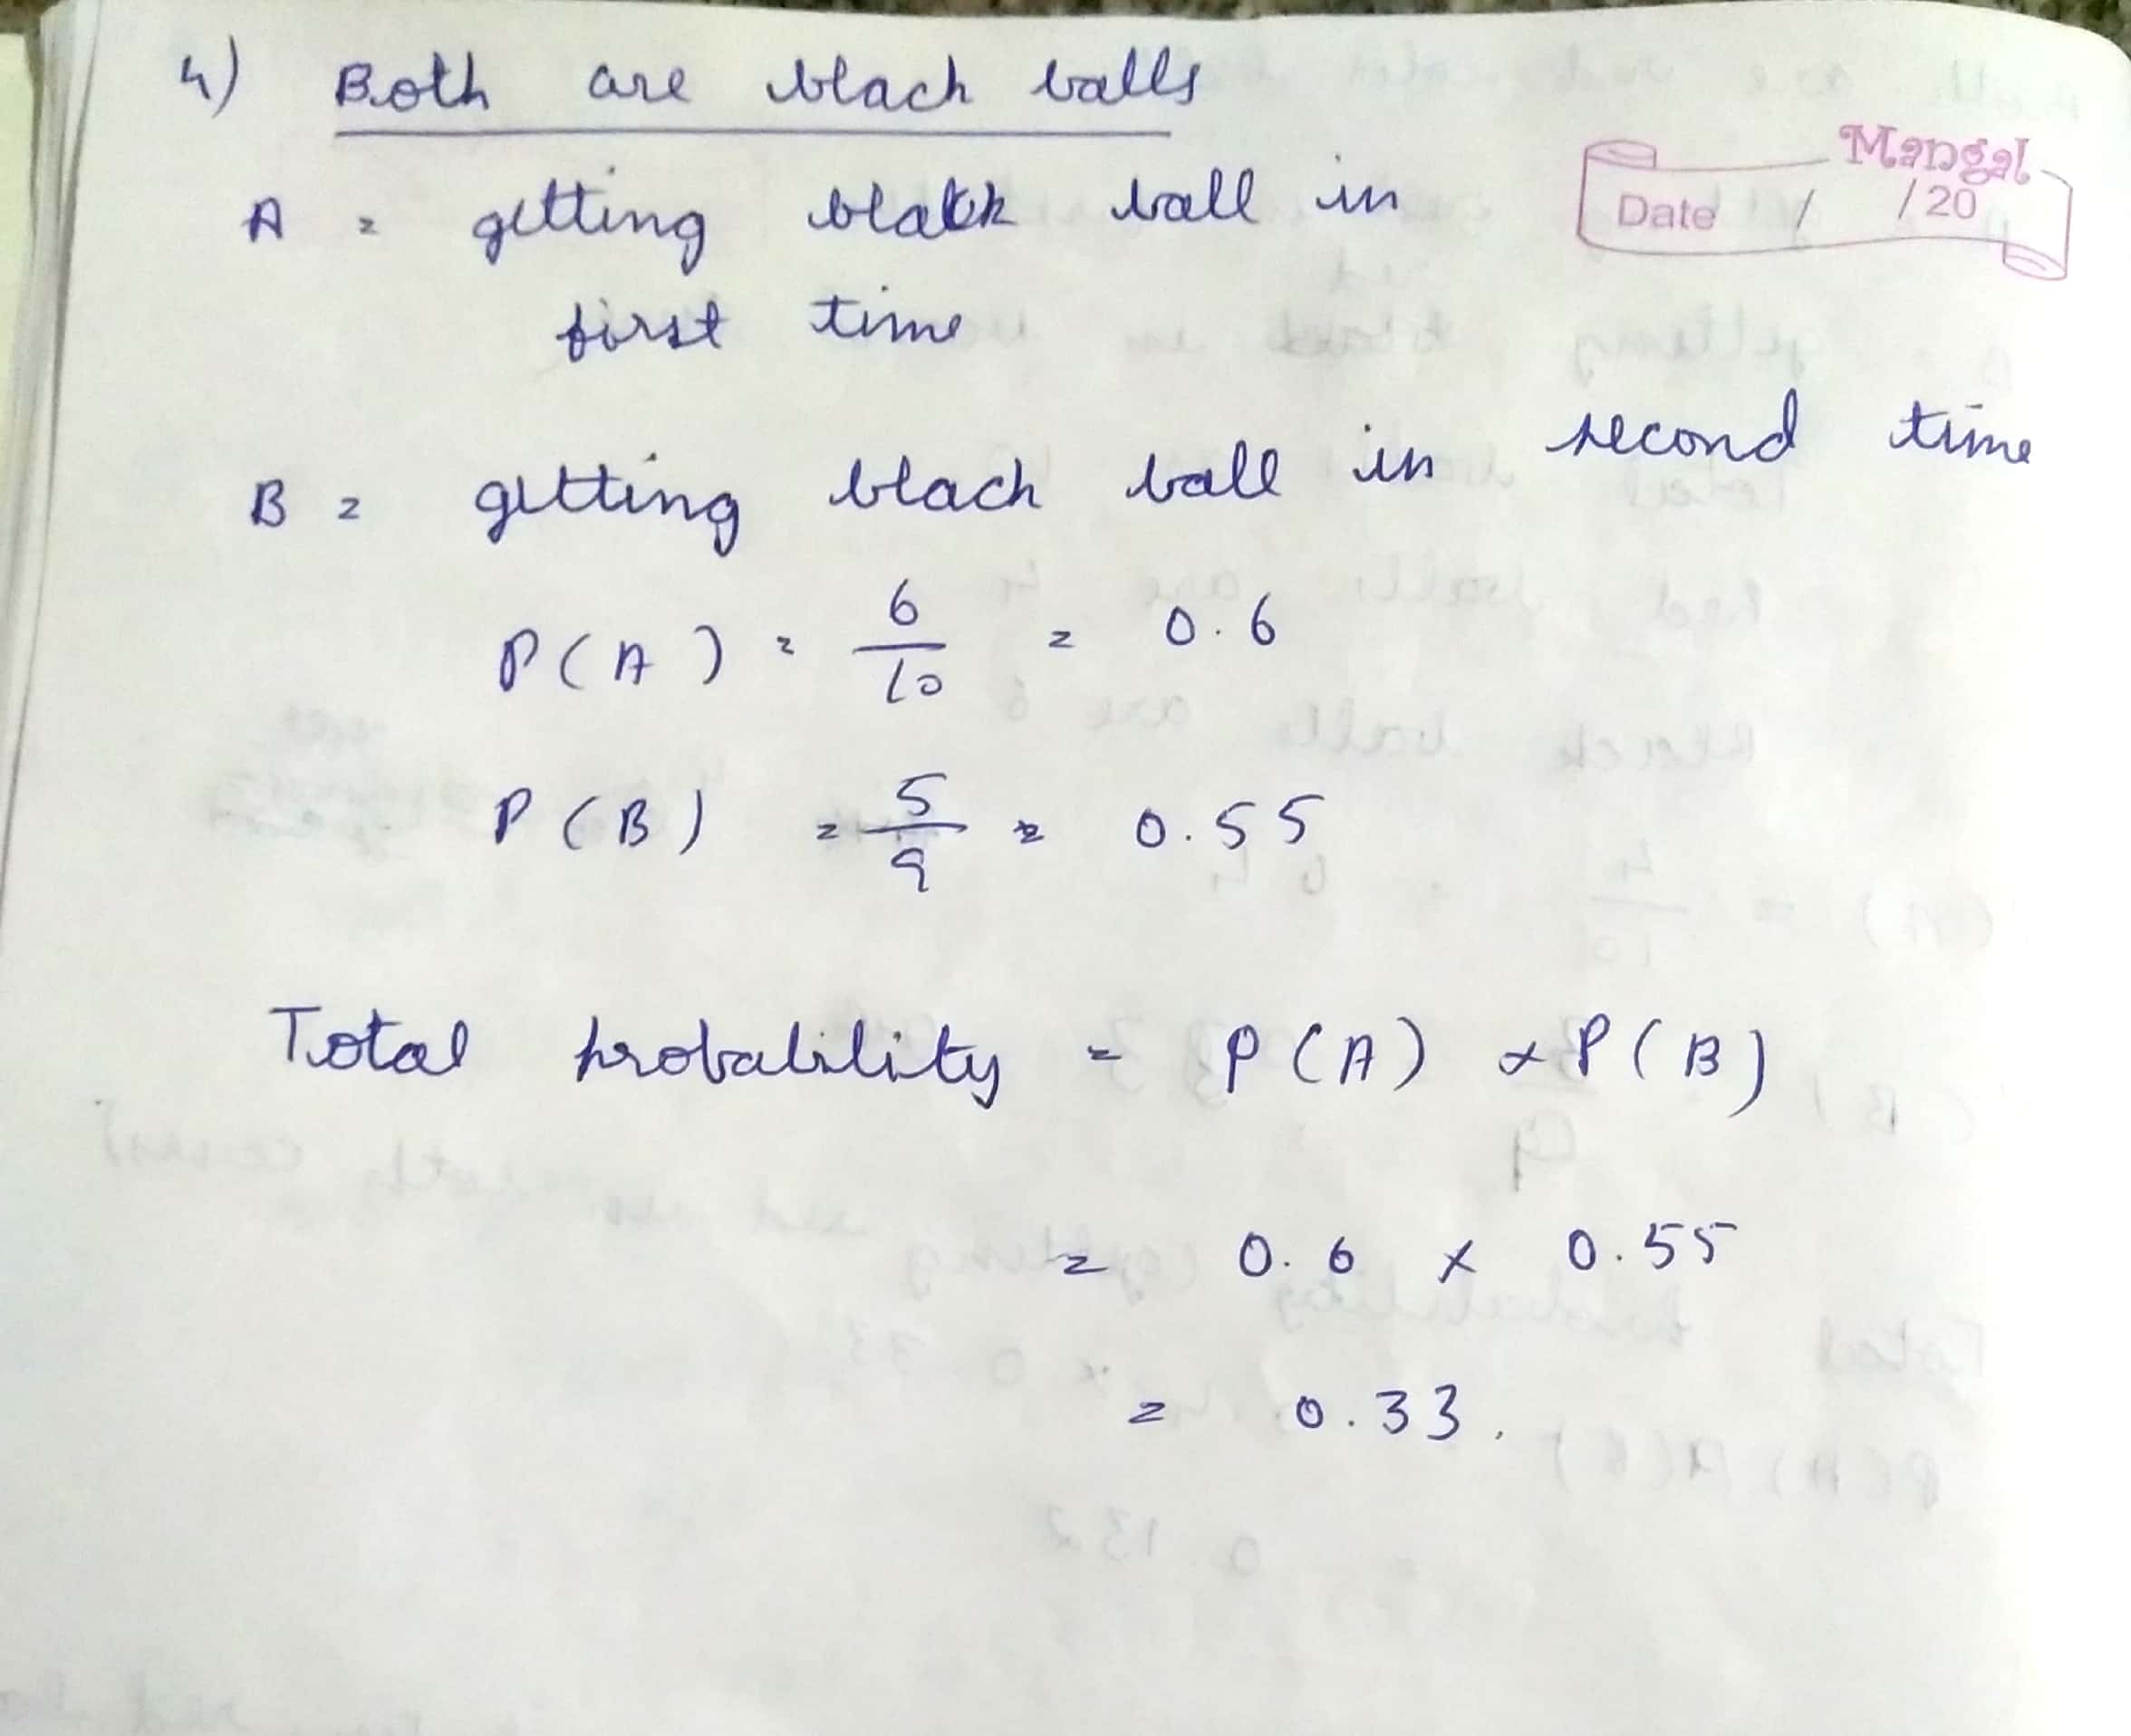 4) Both are black balls
Mangal
Date / /20
A = getting black ball in
first time
B = getting black ball in second time
P(A) = 6/10 = 0.6
P(B) = 5/9 = 0.55
Total probability = P(A) x P(B)
= 0.6 x 0.55
= 0.33.